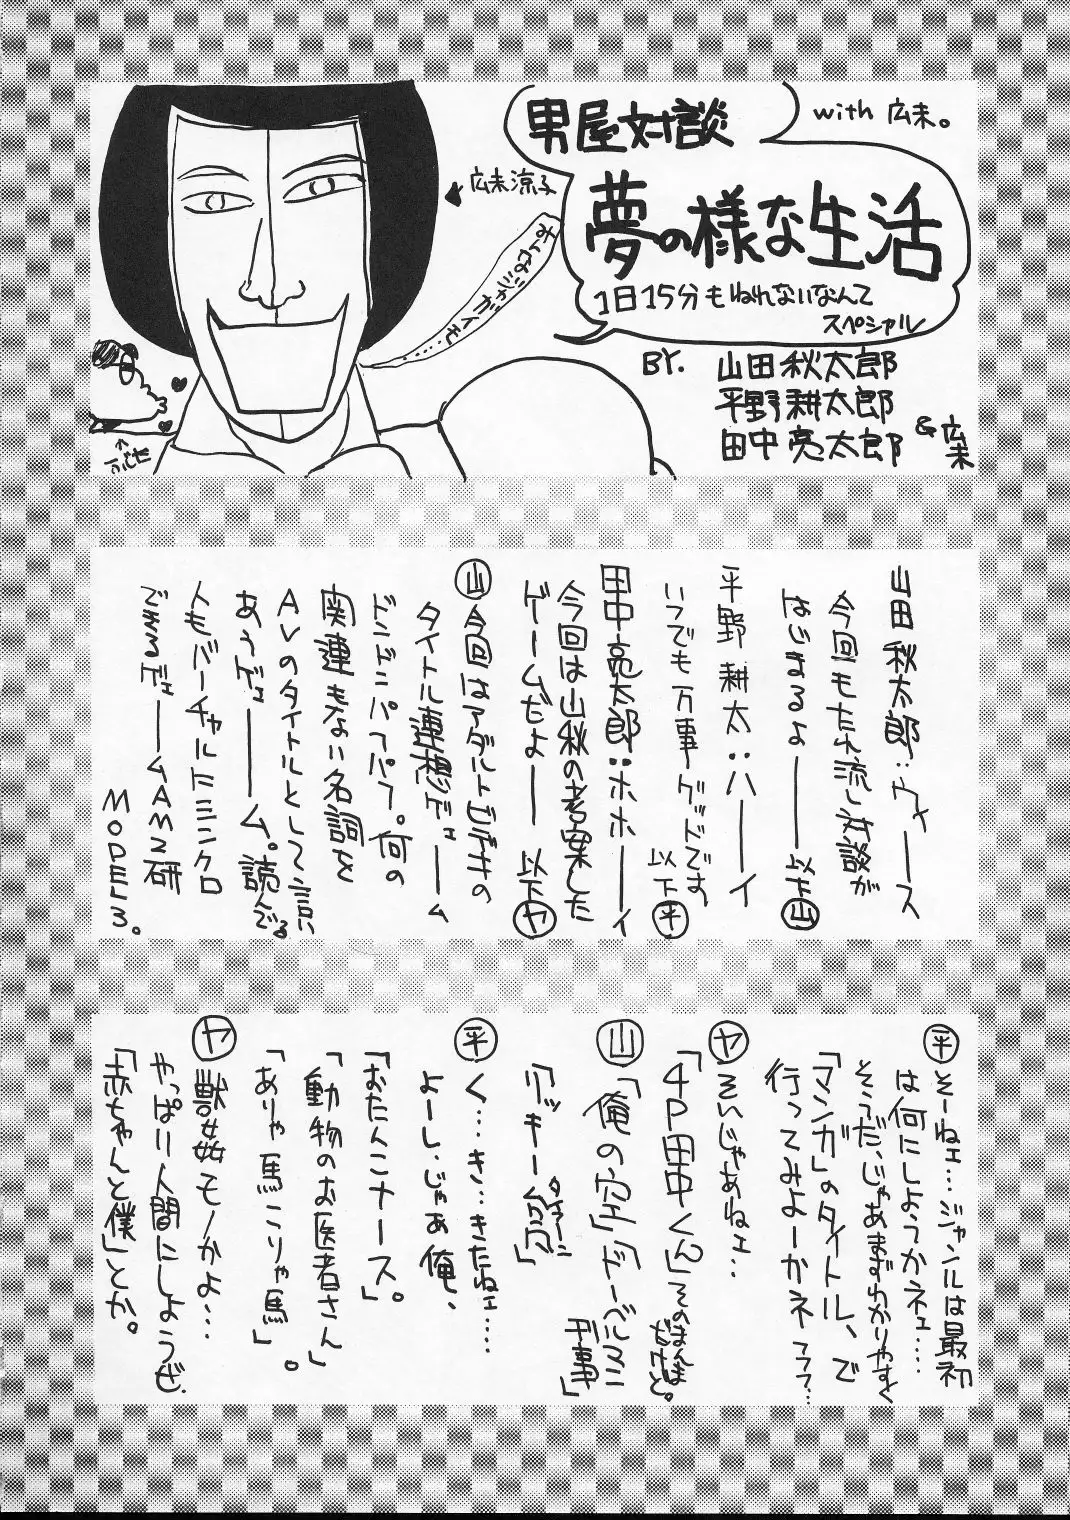 男屋対談
with 広末。
夢の様な生活
1日15分もねれないなんて
スペシャル
広末涼子
ぼくはジャガイモ……
BY. 山田秋太郎
平野耕太郎
田中亮太郎
&広末
山田秋太郎:ウィース
今回もたれ流し対談が
はじまるよ――以下山
平野耕太:ハーイ
いつでも万事グッドです
以下平
田中亮太郎:ホホーイ
今回は山秋の考案した
ゲームだよー 以下ヤ
山 今回はアダルトビデオの
タイトル連想ゲェーム
ドンドンパフパフ。何の
関連もない名詞を
AVのタイトルとして言い
あうゲェ――ム。読んでる
人もバーチャルにシンクロ
できるゲェ――ムAM2研
MODEL3。
平 そーねェ…ジャンルは最初
は何にしようかネェ……
そうだ、じゃあまずわかりやすく
「マンガ」のタイトル、で
行ってみよーかネフフフ…
ヤ そいじゃあねェ…
「4P田中くん」そのまんま
だけど。
山「俺の空」「ドーベルマン
刑事」
「リッキー台風」
タイフーン
平 く…き…きたねェ……
よーし、じゃあ俺、
「おたんこナース」。
「動物のお医者さん」
「ありゃ馬こりゃ馬」。
ヤ 獣姦モノかよ…
やっぱり人間にしようぜ、
「赤ちゃんと僕」とか。